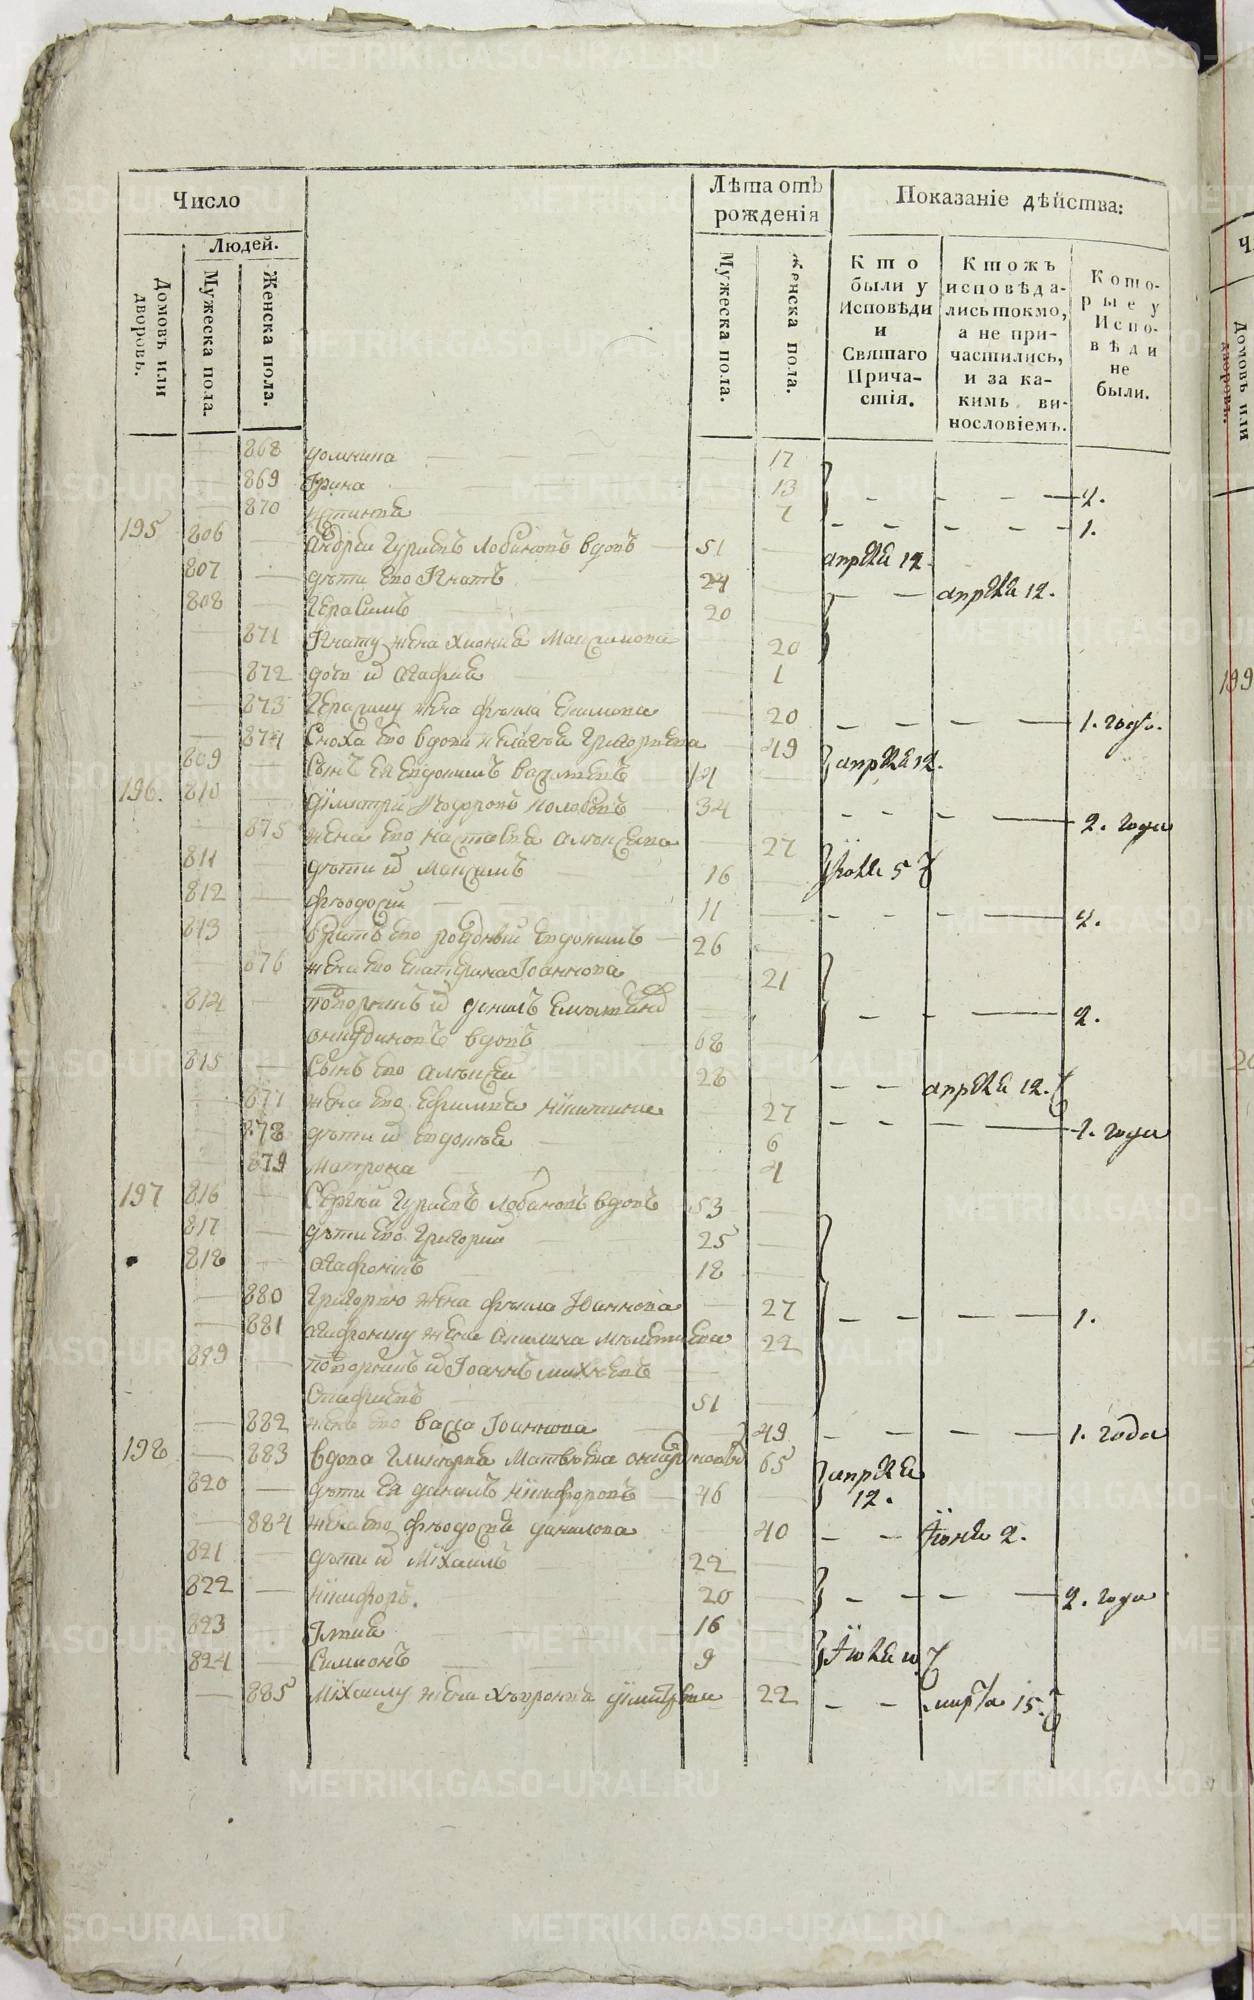 Число
Лѣта отъ рожденія
Показаніе дѣйства:
Людей.
Домовъ или дворовъ.
Мужеска пола.
Женска пола.
Мужеска пола.
Женска пола.
Кто были у Исповѣди и Святаго Причастія.
Ктожъ исповѣдались токмо, а не причастились, и за какимъ винословіемъ.
Которые у Исповѣди не были.
868 домнина 17
869 Ірина 13 2.
870 7 1.
195 806 андрей Гуриевъ Лобановъ вдовъ 51 апреля 12
807 дѣти его Игнатъ 24 апреля 12.
808 Герасимъ 20
871 Игнату жена Хиония Максимова 20
872 дочь их Агафия 1
873 Герасиму жена фекла Екимова 20 1. годъ.
874 Сноха его вдова Пелагея Григорьева 49 апреля 12.
809 Сынъ ея Евдокимъ Василиевъ 14
196. 810 Димитрій 34 2. года
875 жена его Настасья Алексеева 27
811 дѣти их Максимъ 16 Июля 5
812 феодосий 11 2.
813 братъ его родный Евдокимъ 26
876 жена его Екатерина Іоаннова 21
814 подворникъ их данилъ 2.
вдовъ 68
815 Сынъ его Алексей 28 апреля 12.
877 жена его Ефимия Никитина 27
878 дѣти их Евдокия 6 1. года
879 Матрона 4
197 816 Сергей Гуриевъ Лобановъ вдовъ 53
817 дѣти его Григорий 25
818 Агафонъ 18
880 Григорию жена фекла Іоаннова 27 1.
881 Агафону жена Акилина 22
819 подворникъ их Іоаннъ Михеевъ
51
882 жена его Васса Іоаннова 49 1. года
198 883 вдова Гликерия Матвеева 65 апреля 12.
820 дѣти ея данилъ Никифоровъ 46
884 жена его феодосия данилова 40 Июня 2.
821 дѣти их Михаилъ 22
822 Никифоръ. 20 2. года
823 Илия 16
824 Симионъ 9
885 Михаилу жена Хеврония димитриева 22 марта 15.
METRIKI.GASO-URAL.RU